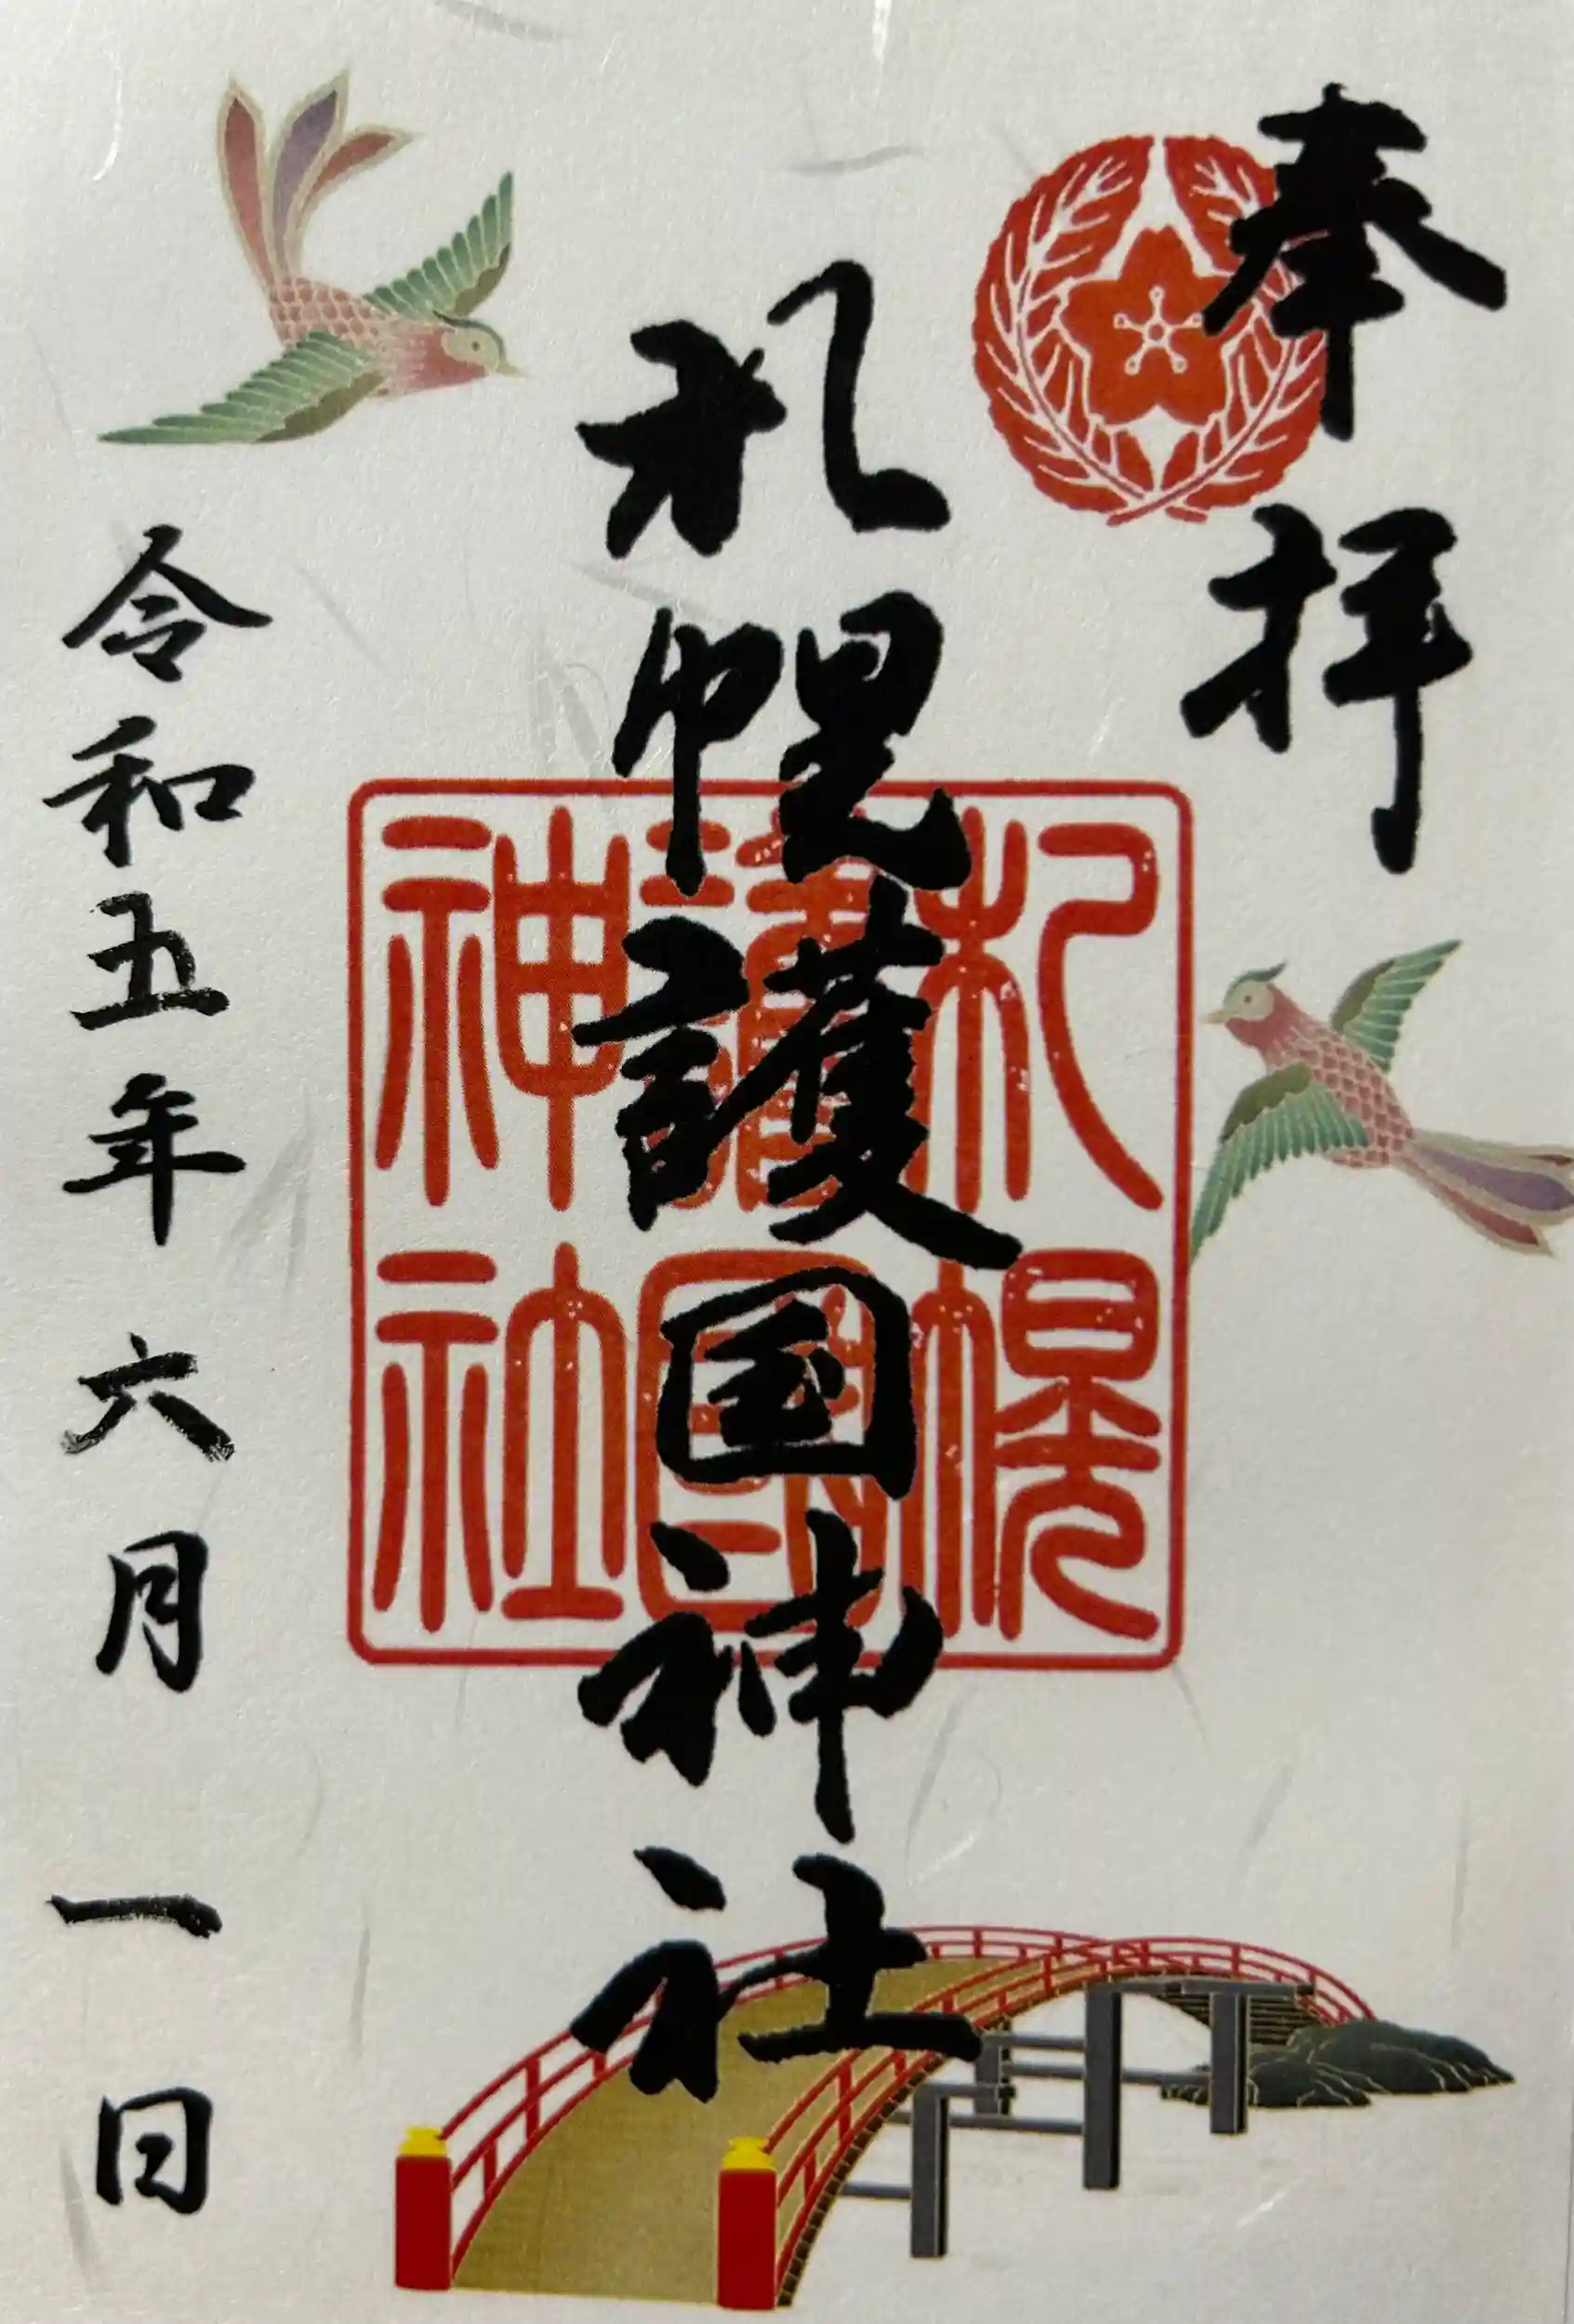 奉拝
札幌護国神社
札幌
護國
神社
令和五年六月一日